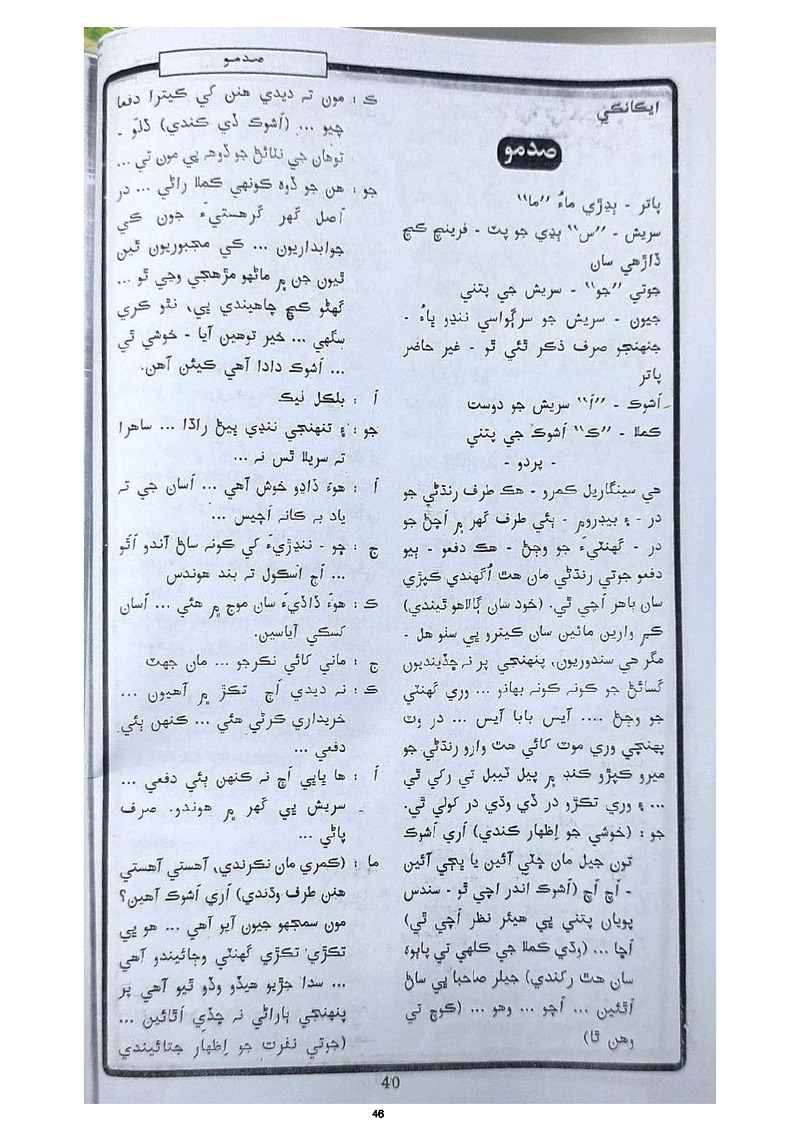 صدمو
ايڪانڪي
صدمو
پاتر - ٻڍڙي ماءُ ”ما“
سريش - ”س“ ٻڍي جو پٽ - فرينچ ڪٽ
ڏاڙهي سان
جوتي ”جو“ - سريش جي پتني
جيون - سريش جو سرڳواسي ننڍو ڀاءُ -
جنهنجو صرف ذڪر ٿئي ٿو - غير حاضر
پاتر
اَشوڪ - ”اَ“ سريش جو دوست
ڪملا - ”ڪ“ اَشوڪ جي پتني
- پردو -
هي سينگاريل ڪمرو - هڪ طرف رنڌڻي جو
در - ۽ بيڊروم - ٻئي طرف گهر ۾ اَچڻ جو
در - گهنٽيءَ جو وڄڻ - هڪ دفعو - ٻيو
دفعو جوتي رنڌڻي مان هٿ اُگهندي ڪپڙي
سان ٻاهر اَچي ٿي. (خود سان ڳالاهو ٿيندي)
ڪم وارين مائين سان ڪيترو ڀي سٺو هل -
مگر هي سندوريون، پنهنجي پر نہ ڇڏينديون
گسائڻ جو ڪونہ ڪونہ بهانو ... وري گهنٽي
جو وڄڻ .... آيس بابا آيس ... در وٽ
پهنچي وري موٽ کائي هٿ وارو رنڌڻي جو
ميرو ڪپڙو ڪنڊ ۾ پيل ٽيبل تي رکي ٿي
... ۽ وري تڪڙو در ڏي وڌي در کولي ٿي.
جو : (خوشي جو اِظهار ڪندي) اَري اَشوڪ
تون جيل مان ڇٽي آئين يا ڀڄي آئين
- اَچ اَچ (اَشوڪ اندر اچي ٿو - سندس
پويان پتني ڀي هيئر نظر اَچي ٿي)
اَڇا ... (وڌي ڪملا جي ڪلهي تي پاٻوهه
سان هٿ رکندي) جيلر صاحبا ڀي ساڻ
اَٿئين ... اَچو ... وهو ... (ڪوچ تي
وهن ٿا)
ڪ : مون تہ ديدي هنن کي ڪيترا دفعا
چيو ... (اَشوڪ ڏي ڪندي) ڏٺو -
توهان جي نٽائڻ جو ڏوهہ ڀي مون تي ...
جو : هن جو ڏوهہ ڪونهي ڪملا راڻي ... در
اَصل گهر گرهستيءَ جون کي
جوابداريون ... کي مجبوريون ٿين
ٿيون جن ۾ ماڻهو مڙهجي وڃي ٿو ...
گهڻو ڪجھ چاهيندي ڀي، نٿو ڪري
سگهي ... خير توهين آيا - خوشي ٿي
... اَشوڪ دادا آهي ڪيئن آهن.
اَ : بلڪل ٺيڪ
جو : ۽ تنهنجي ننڍي ڀيڻ راڌا ... ساهرا
تہ سرپلا ٿس نہ ...
اَ : هوءَ ڏاڍو خوش آهي ... اَسان جي تہ
ياد بہ ڪانہ اَچيس ...
ج : ڇو - ننڍڙيءَ کي ڪونہ ساڻ آندو اَٿو
... اَڄ اسڪول تہ بند هوندس
ڪ : هوءَ ڏاڏيءَ سان موج ۾ هئي ... اَسان
کسڪي آياسين.
ج : ماني کائي نڪرجو ... مان جهٽ
ڪ : نہ ديدي اَڄ تڪڙ ۾ آهيون ...
خريداري ڪرڻي هئي ... ڪنهن ٻئي
دفعي ...
اَ : ها ڀاڀي اَڄ نہ ڪنهن ٻئي دفعي ...
سريش ڀي گهر ۾ هوندو. صرف
پاڻي ...
ما : (ڪمري مان نڪرندي، آهستي آهستي
هنن طرف وڌندي) اَري اَشوڪ آهين؟
مون سمجهو جيون آيو آهي ... هو ڀي
تڪڙي تڪڙي گهنٽي وڄائيندو آهي
... سدا جڙيو هيڏو وڏو ٿيو آهي پر
پنهنجي ٻاراڻي نہ ڇڏي اَٿائين ...
(جوتي نفرت جو اِظهار جتائيندي
40
46